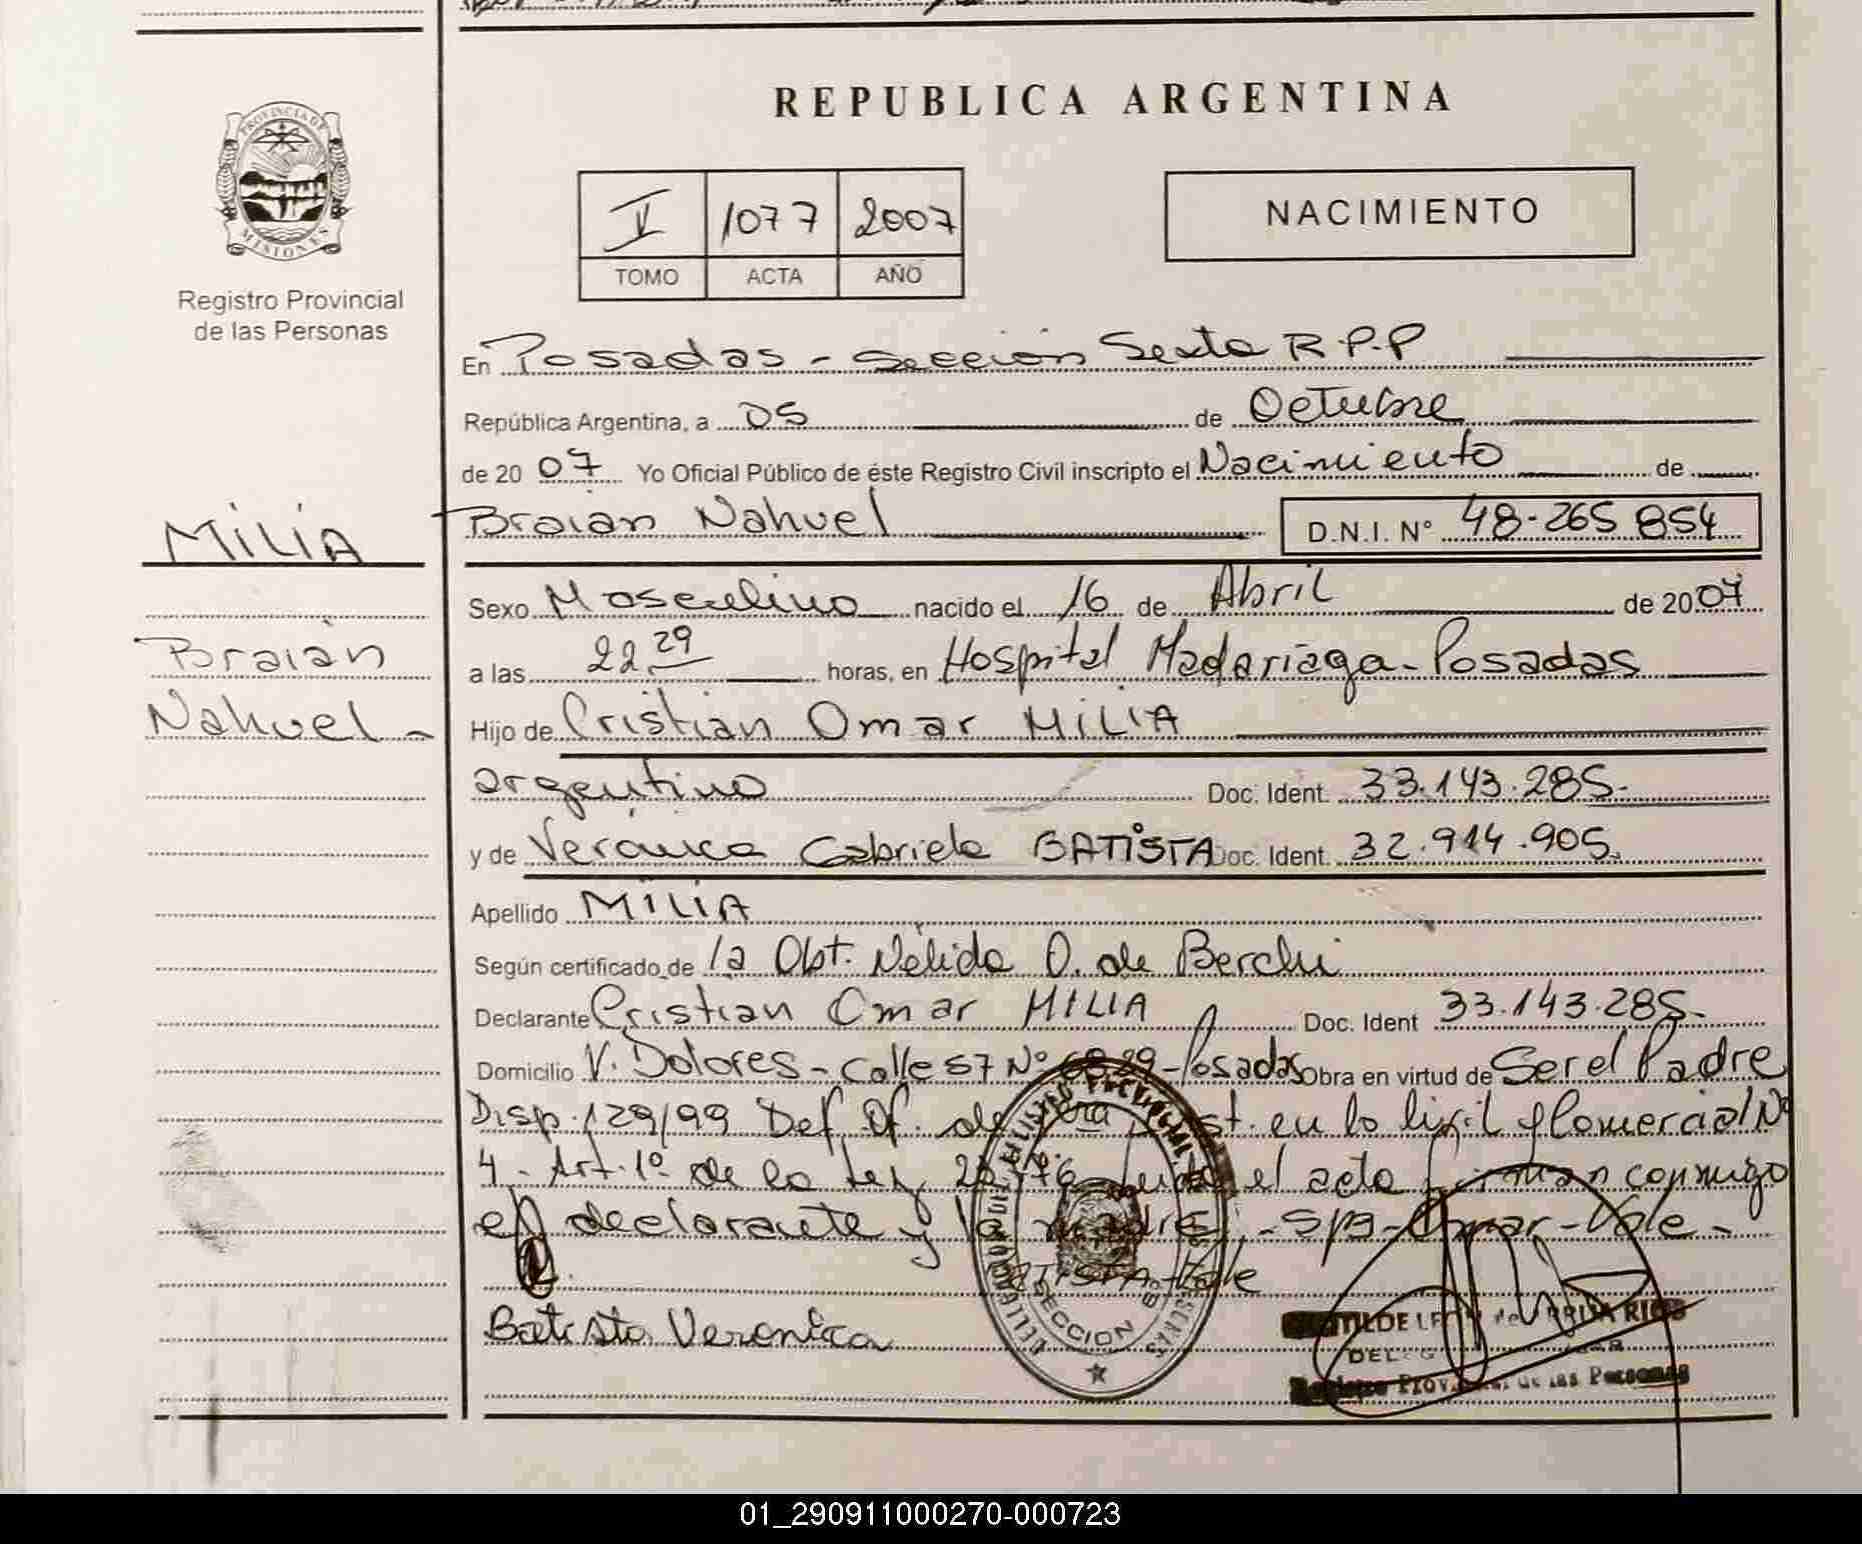 REPUBLICA ARGENTINA
PROVINCIA DE
MISIONES
Registro Provincial
de las Personas
V 1077 2007
TOMO ACTA AÑO
NACIMIENTO
En Posadas - Sección Sexta R.P.P
República Argentina, a 05 de Octubre
de 2007 Yo Oficial Público de éste Registro Civil inscripto el Nacimiento de
MILIA
Braian Nahuel D.N.I. N° 48-265 854
Sexo Masculino nacido el 16 de Abril de 2007
Braian
a las 22.29 horas, en Hospital Madariaga - Posadas
Nahuel -
Hijo de Cristian Omar MILIA
argentino Doc. Ident. 33.143.285.-
y de Verónica Gabriela BATISTA Doc. Ident. 32.914.905.
Apellido MILIA
Según certificado de la Obt. Nélida O. de Berchi
Declarante Cristian Omar MILIA Doc. Ident 33.143.285.-
Domicilio V. Dolores - Calle 57 N° 6829 - Posadas Obra en virtud de Ser el Padre
Disp. 129/99 Def. Of. de 1ra Inst. en lo Civil y Comercial N°
4 - Art. 1° de la Ley el acta firman conmigo
el declarante y la madre.- S/B - Omar - Vale -
BATISTA - Vale
Batista Veronica
SECCION 6
DE
Registro Provincial de las Personas
01_290911000270-000723